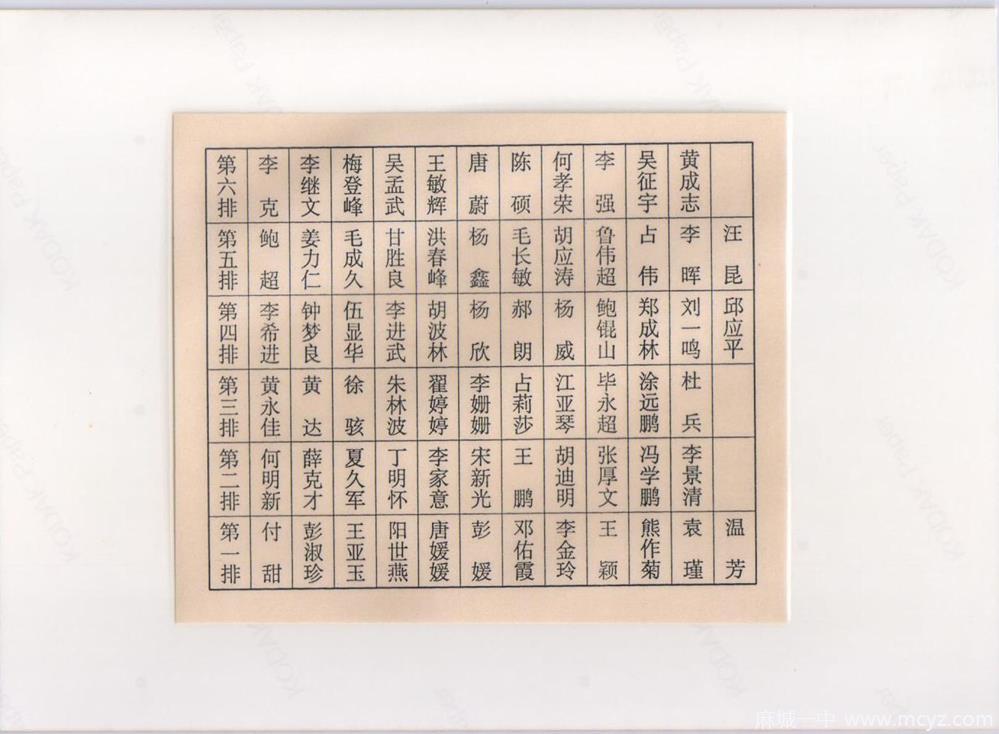 第六排 李克 李继文 梅登峰 吴孟武 王敏辉 唐蔚 陈硕 何孝荣 李强 吴征宇 黄成志
第五排 鲍超 姜力仁 毛成久 甘胜良 洪春峰 杨鑫 毛长敏 胡应涛 鲁伟超 占伟 李晖 汪昆
第四排 李希进 钟梦良 伍显华 李进武 胡波林 杨欣 郝朗 杨威 鲍锟山 郑成林 刘一鸣 邱应平
第三排 黄永佳 黄达 徐骇 朱林波 翟婷婷 李姗姗 占莉莎 江亚琴 毕永超 涂远鹏 杜兵
第二排 何明新 薛克才 夏久军 丁明怀 李家意 宋新光 王鹏 胡迪明 张厚文 冯学鹏 李景清
第一排 付甜 彭淑珍 王亚玉 阳世燕 唐媛媛 彭媛 邓佑霞 李金玲 王颖 熊作菊 袁瑾 温芳
麻城一中 www.mcyz.com